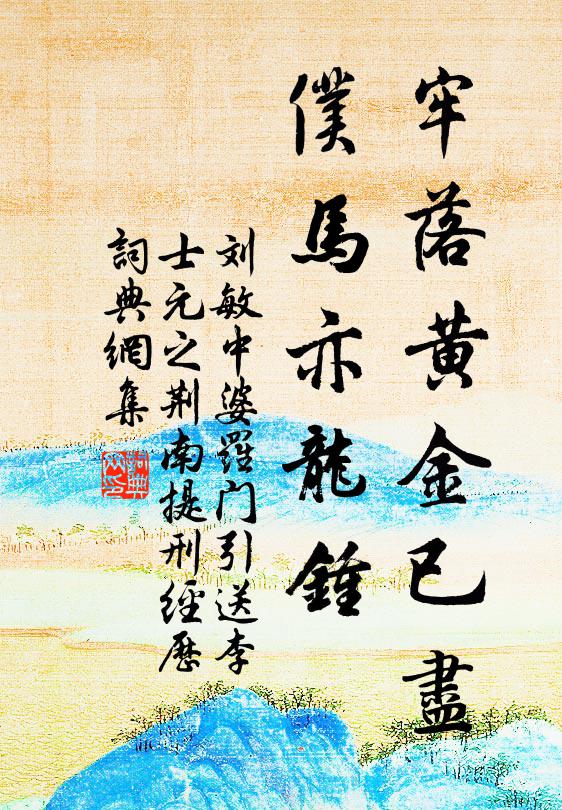 牢落黄金已盡
僕馬亦龍鍾
刘敏中婆羅门引送李
士元之荆南提刑經歷
詞典網集